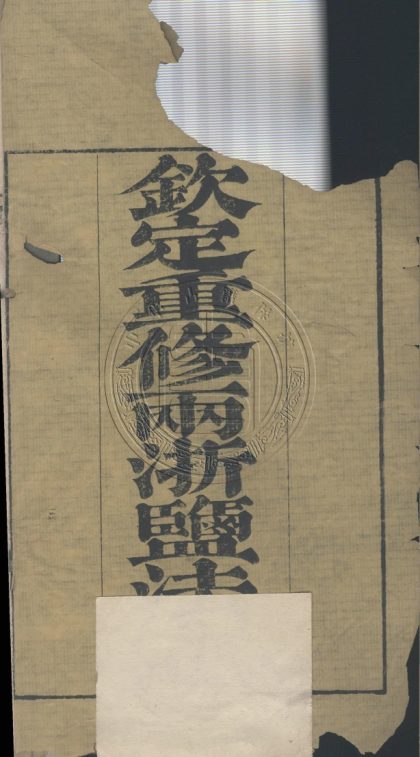 欽定重修兩浙鹽法